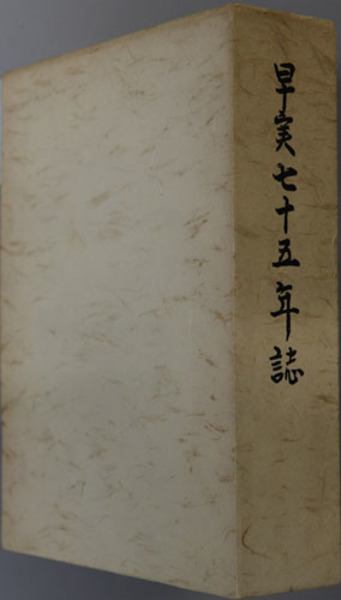 早実七十五年誌